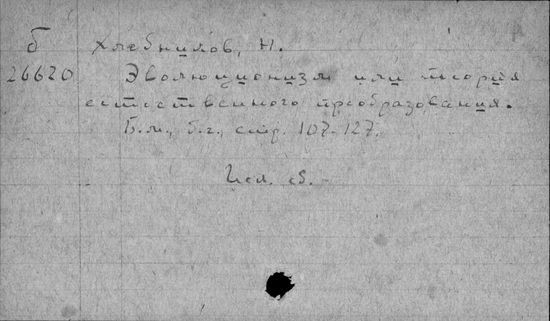 б Хлебников, Н.
26620 Эволюционизм или теория
естественного преобразования.
Б.м., б.г., стр. 107-127.